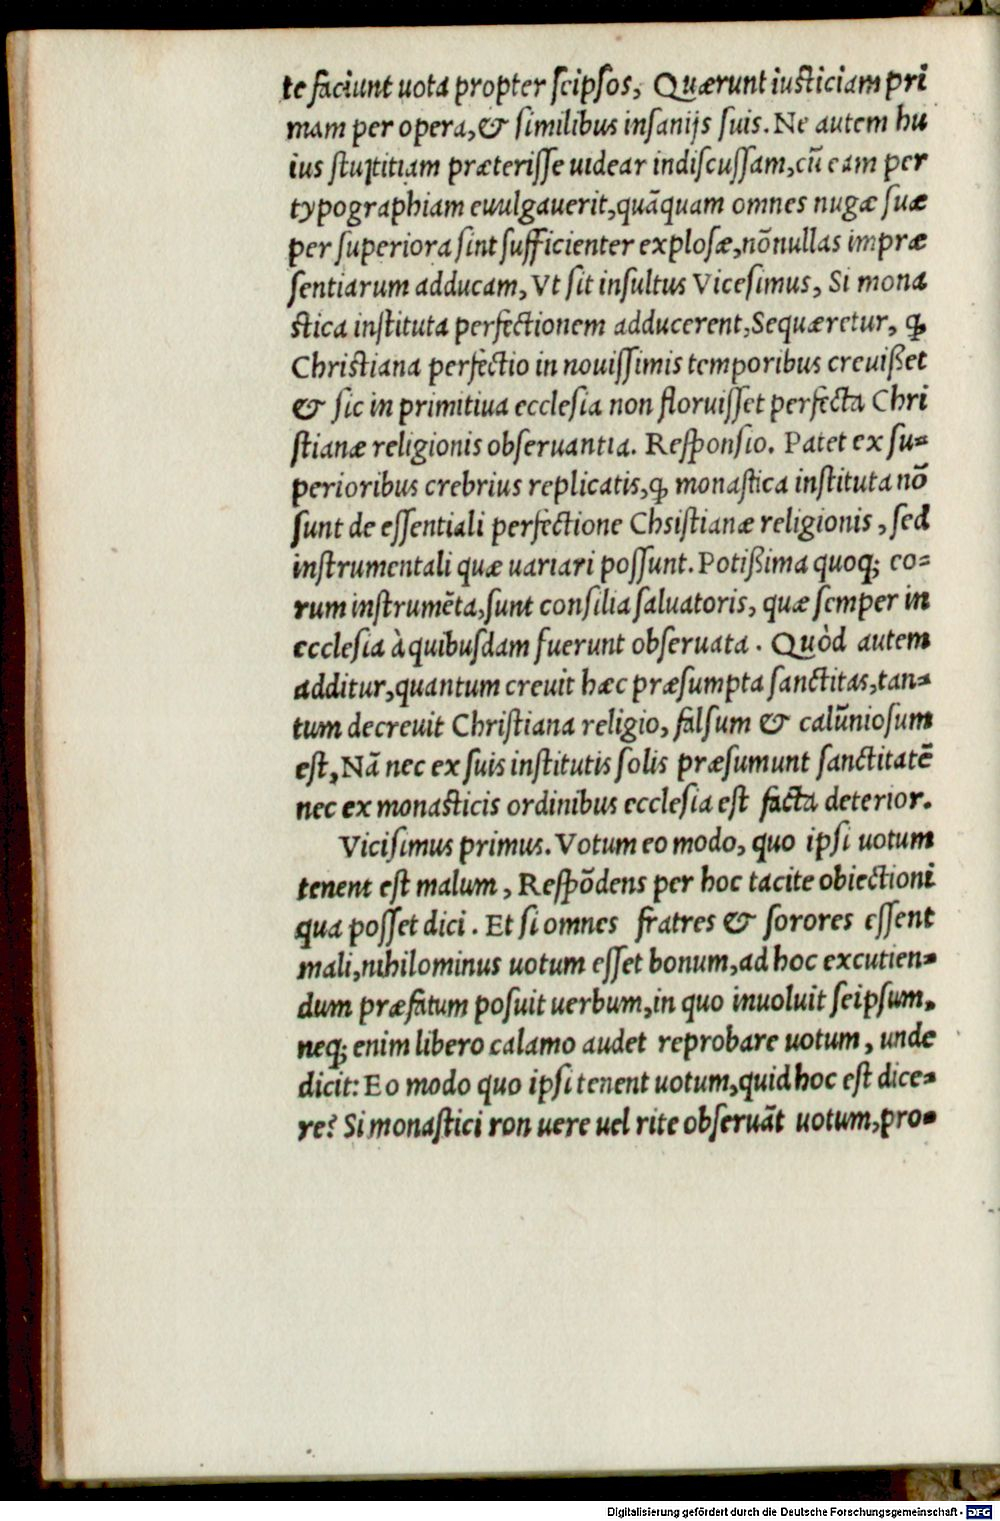 te faciunt uota propter seipsos, Quærunt iusticiam pri
mam per opera,& similibus insanijs suis. Ne autem hu
ius stultitiam præterisse uidear indiscussam,cũ eam per
typographiam euulgauerit,quãquam omnes nugæ suæ
per superiora sint sufficienter explosæ,nõnullas impræ
sentiarum adducam, Vt sit insultus Vicesimus, Si mona
stica instituta perfectionem adducerent,Sequæretur, ꝙ
Christiana perfectio in nouissimis temporibus creuißet
& sic in primitiua ecclesia non floruisset perfecta Chri
stianæ religionis obseruantia. Responsio. Patet ex su=
perioribus crebrius replicatis,ꝙ monastica instituta nõ
sunt de essentiali perfectione Chsistianæ religionis, sed
instrumentali quæ uariari possunt. Potißima quoq; eo=
rum instrumẽta,sunt consilia saluatoris, quæ semper in
ecclesia à quibusdam fuerunt obseruata. Quòd autem
additur,quantum creuit hæc præsumpta sanctitas,tan=
tum decreuit Christiana religio, falsum & calũniosum
est, Nã nec ex suis institutis solis præsumunt sanctitatẽ
nec ex monasticis ordinibus ecclesia est facta deterior.
Vicisimus primus. Votum eo modo, quo ipsi uotum
tenent est malum, Respõdens per hoc tacite obiectioni
qua posset dici. Et si omnes fratres & sorores essent
mali,nihilominus uotum esset bonum,ad hoc excutien=
dum præfatum posuit uerbum,in quo inuoluit seipsum,
neq; enim libero calamo audet reprobare uotum, unde
dicit: Eo modo quo ipsi tenent uotum,quid hoc est dice=
re? Si monastici ron uere uel rite obseruãt uotum,pro=
Digitalisierung gefördert durch die Deutsche Forschungsgemeinschaft - DFG